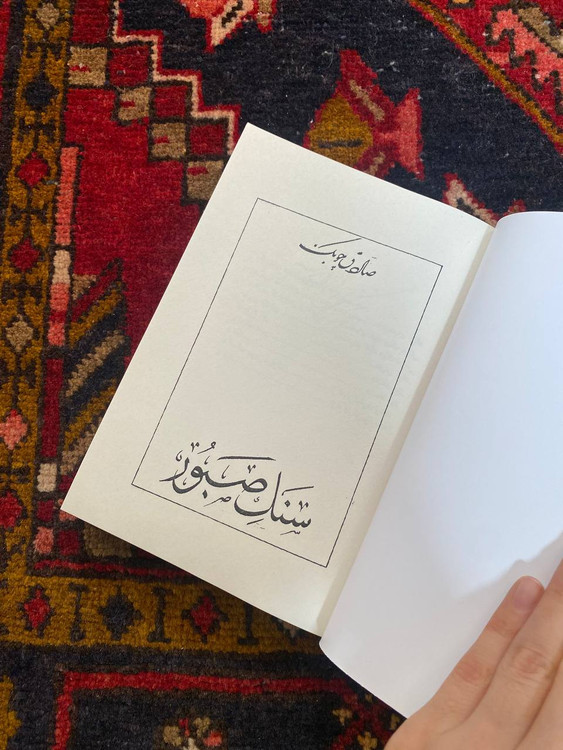 صادق چوبک
سَنگِ صَبُور